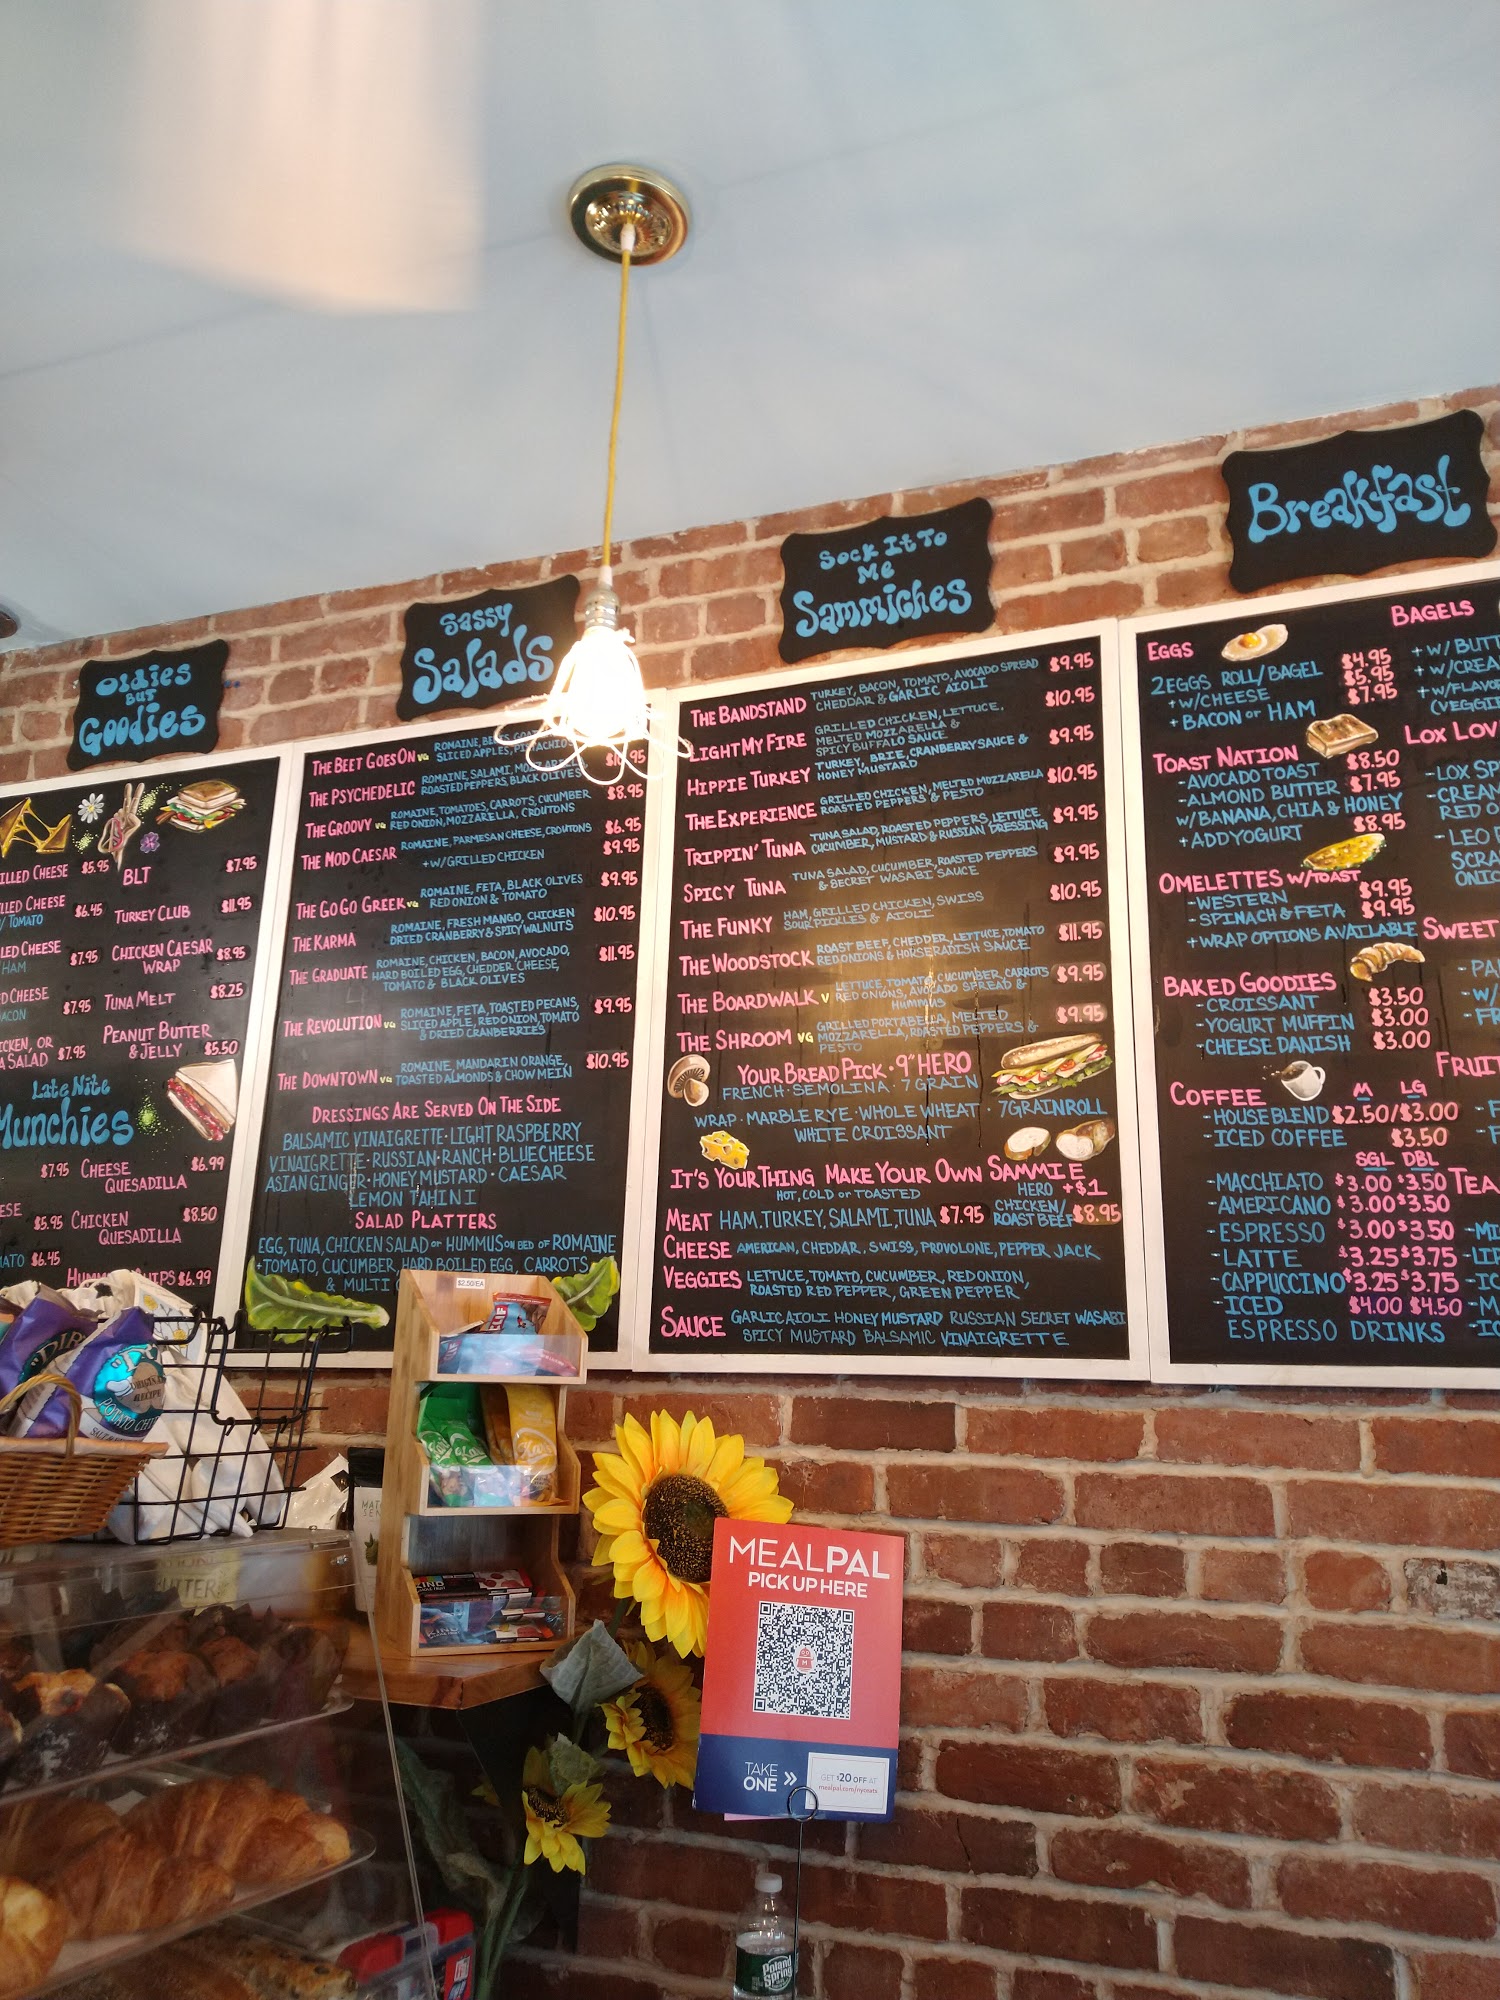 Oldies
But
Goodies
$5.95
BLT $7.95
$6.45
TURKEY CLUB $11.95
$7.95
CHICKEN CAESAR $8.95
WRAP
$7.95
TUNA MELT $8.25
$7.95
PEANUT BUTTER
& JELLY $5.50
Late Nite
Munchies
$7.95
CHEESE $6.99
QUESADILLA
$5.95
CHICKEN $8.50
QUESADILLA
$6.45
$6.99
Sassy
Salads
THE BEET GOES ON VG
SLICED APPLES, PISTACHIOS
THE PSYCHEDELIC ROMAINE, SALAMI, MOZZARELLA
ROASTED PEPPERS BLACK OLIVES $8.95
THE GROOVY VG ROMAINE, TOMATOES, CARROTS, CUCUMBER
RED ONION, MOZZARELLA, CROUTONS $6.95
THE MOD CAESAR ROMAINE, PARMESAN CHEESE, CROUTONS $9.95
+W/GRILLED CHICKEN
THE GO GO GREEK VG ROMAINE, FETA, BLACK OLIVES $9.95
RED ONION & TOMATO
THE KARMA ROMAINE, FRESH MANGO, CHICKEN $10.95
DRIED CRANBERRY & SPICY WALNUTS
THE GRADUATE ROMAINE, CHICKEN, BACON, AVOCADO, $11.95
HARD BOILED EGG, CHEDDER CHEESE,
TOMATO & BLACK OLIVES
THE REVOLUTION VG ROMAINE, FETA, TOASTED PECANS, $9.95
SLICED APPLE, RED ONION, TOMATO
& DRIED CRANBERRIES
THE DOWNTOWN VG ROMAINE, MANDARIN ORANGE, $10.95
TOASTED ALMONDS & CHOW MEIN
DRESSINGS ARE SERVED ON THE SIDE
BALSAMIC VINAIGRETTE · LIGHT RASPBERRY
VINAIGRETTE · RUSSIAN · RANCH · BLUE CHEESE
ASIAN GINGER · HONEY MUSTARD · CAESAR
LEMON TAHINI
SALAD PLATTERS
EGG, TUNA, CHICKEN SALAD or HUMMUS ON BED OF ROMAINE
+TOMATO, CUCUMBER, HARD BOILED EGG, CARROTS
& MULTI
Sock It To
Me
Sammiches
THE BANDSTAND TURKEY, BACON, TOMATO, AVOCADO SPREAD $9.95
CHEDDAR & GARLIC AIOLI
LIGHT MY FIRE GRILLED CHICKEN, LETTUCE, $10.95
MELTED MOZZARELLA &
SPICY BUFFALO SAUCE
HIPPIE TURKEY TURKEY, BRIE, CRANBERRY SAUCE & $9.95
HONEY MUSTARD
THE EXPERIENCE GRILLED CHICKEN, MELTED MOZZARELLA $10.95
ROASTED PEPPERS & PESTO
TRIPPIN' TUNA TUNA SALAD, ROASTED PEPPERS, LETTUCE $9.95
CUCUMBER, MUSTARD & RUSSIAN DRESSING
SPICY TUNA TUNA SALAD, CUCUMBER, ROASTED PEPPERS $9.95
& SECRET WASABI SAUCE
THE FUNKY HAM, GRILLED CHICKEN, SWISS $10.95
SOUR PICKLES & AIOLI
THE WOODSTOCK ROAST BEEF, CHEDDER, LETTUCE, TOMATO $11.95
RED ONIONS & HORSERADISH SAUCE
THE BOARDWALK V LETTUCE, TOMATO, CUCUMBER, CARROTS $9.95
RED ONIONS, AVOCADO SPREAD &
HUMMUS
THE SHROOM VG GRILLED PORTABELLA, MELTED $9.95
MOZZARELLA, ROASTED PEPPERS &
PESTO
YOUR BREAD PICK · 9" HERO
FRENCH · SEMOLINA · 7 GRAIN
WRAP · MARBLE RYE · WHOLE WHEAT · 7 GRAIN ROLL
WHITE CROISSANT
IT'S YOUR THING MAKE YOUR OWN SAMMIE
HOT, COLD or TOASTED HERO +$1
MEAT HAM, TURKEY, SALAMI, TUNA $7.95 CHICKEN/
ROAST BEEF $8.95
CHEESE AMERICAN, CHEDDAR, SWISS, PROVOLONE, PEPPER JACK
VEGGIES LETTUCE, TOMATO, CUCUMBER, RED ONION,
ROASTED RED PEPPER, GREEN PEPPER
SAUCE GARLIC AIOLI HONEY MUSTARD RUSSIAN SECRET WASABI
SPICY MUSTARD BALSAMIC VINAIGRETTE
Breakfast
EGGS
2 EGGS ROLL/BAGEL $4.95
+ W/CHEESE $5.95
+ BACON or HAM $7.95
TOAST NATION
-AVOCADO TOAST $8.50
-ALMOND BUTTER $7.95
W/BANANA, CHIA & HONEY
+ ADD YOGURT $8.95
OMELETTES W/TOAST
-WESTERN $9.95
-SPINACH & FETA $9.95
+WRAP OPTIONS AVAILABLE
BAKED GOODIES
-CROISSANT $3.50
-YOGURT MUFFIN $3.00
-CHEESE DANISH $3.00
COFFEE M LG
-HOUSE BLEND $2.50/$3.00
-ICED COFFEE $3.50
SGL DBL
-MACCHIATO $3.00 $3.50
-AMERICANO $3.00 $3.50
-ESPRESSO $3.00 $3.50
-LATTE $3.25 $3.75
-CAPPUCCINO $3.25 $3.75
-ICED $4.00 $4.50
ESPRESSO DRINKS
BAGELS
+ W/
+ W/
+ W/
LOX
- LOX
RED
- LEO
SWEET
TEA
$2.50/EA
POTATO
KIND
MEALPAL
PICK UP HERE
TAKE
ONE »
GET $20 OFF AT
mealpal.com/nyceats
Poland
Spring